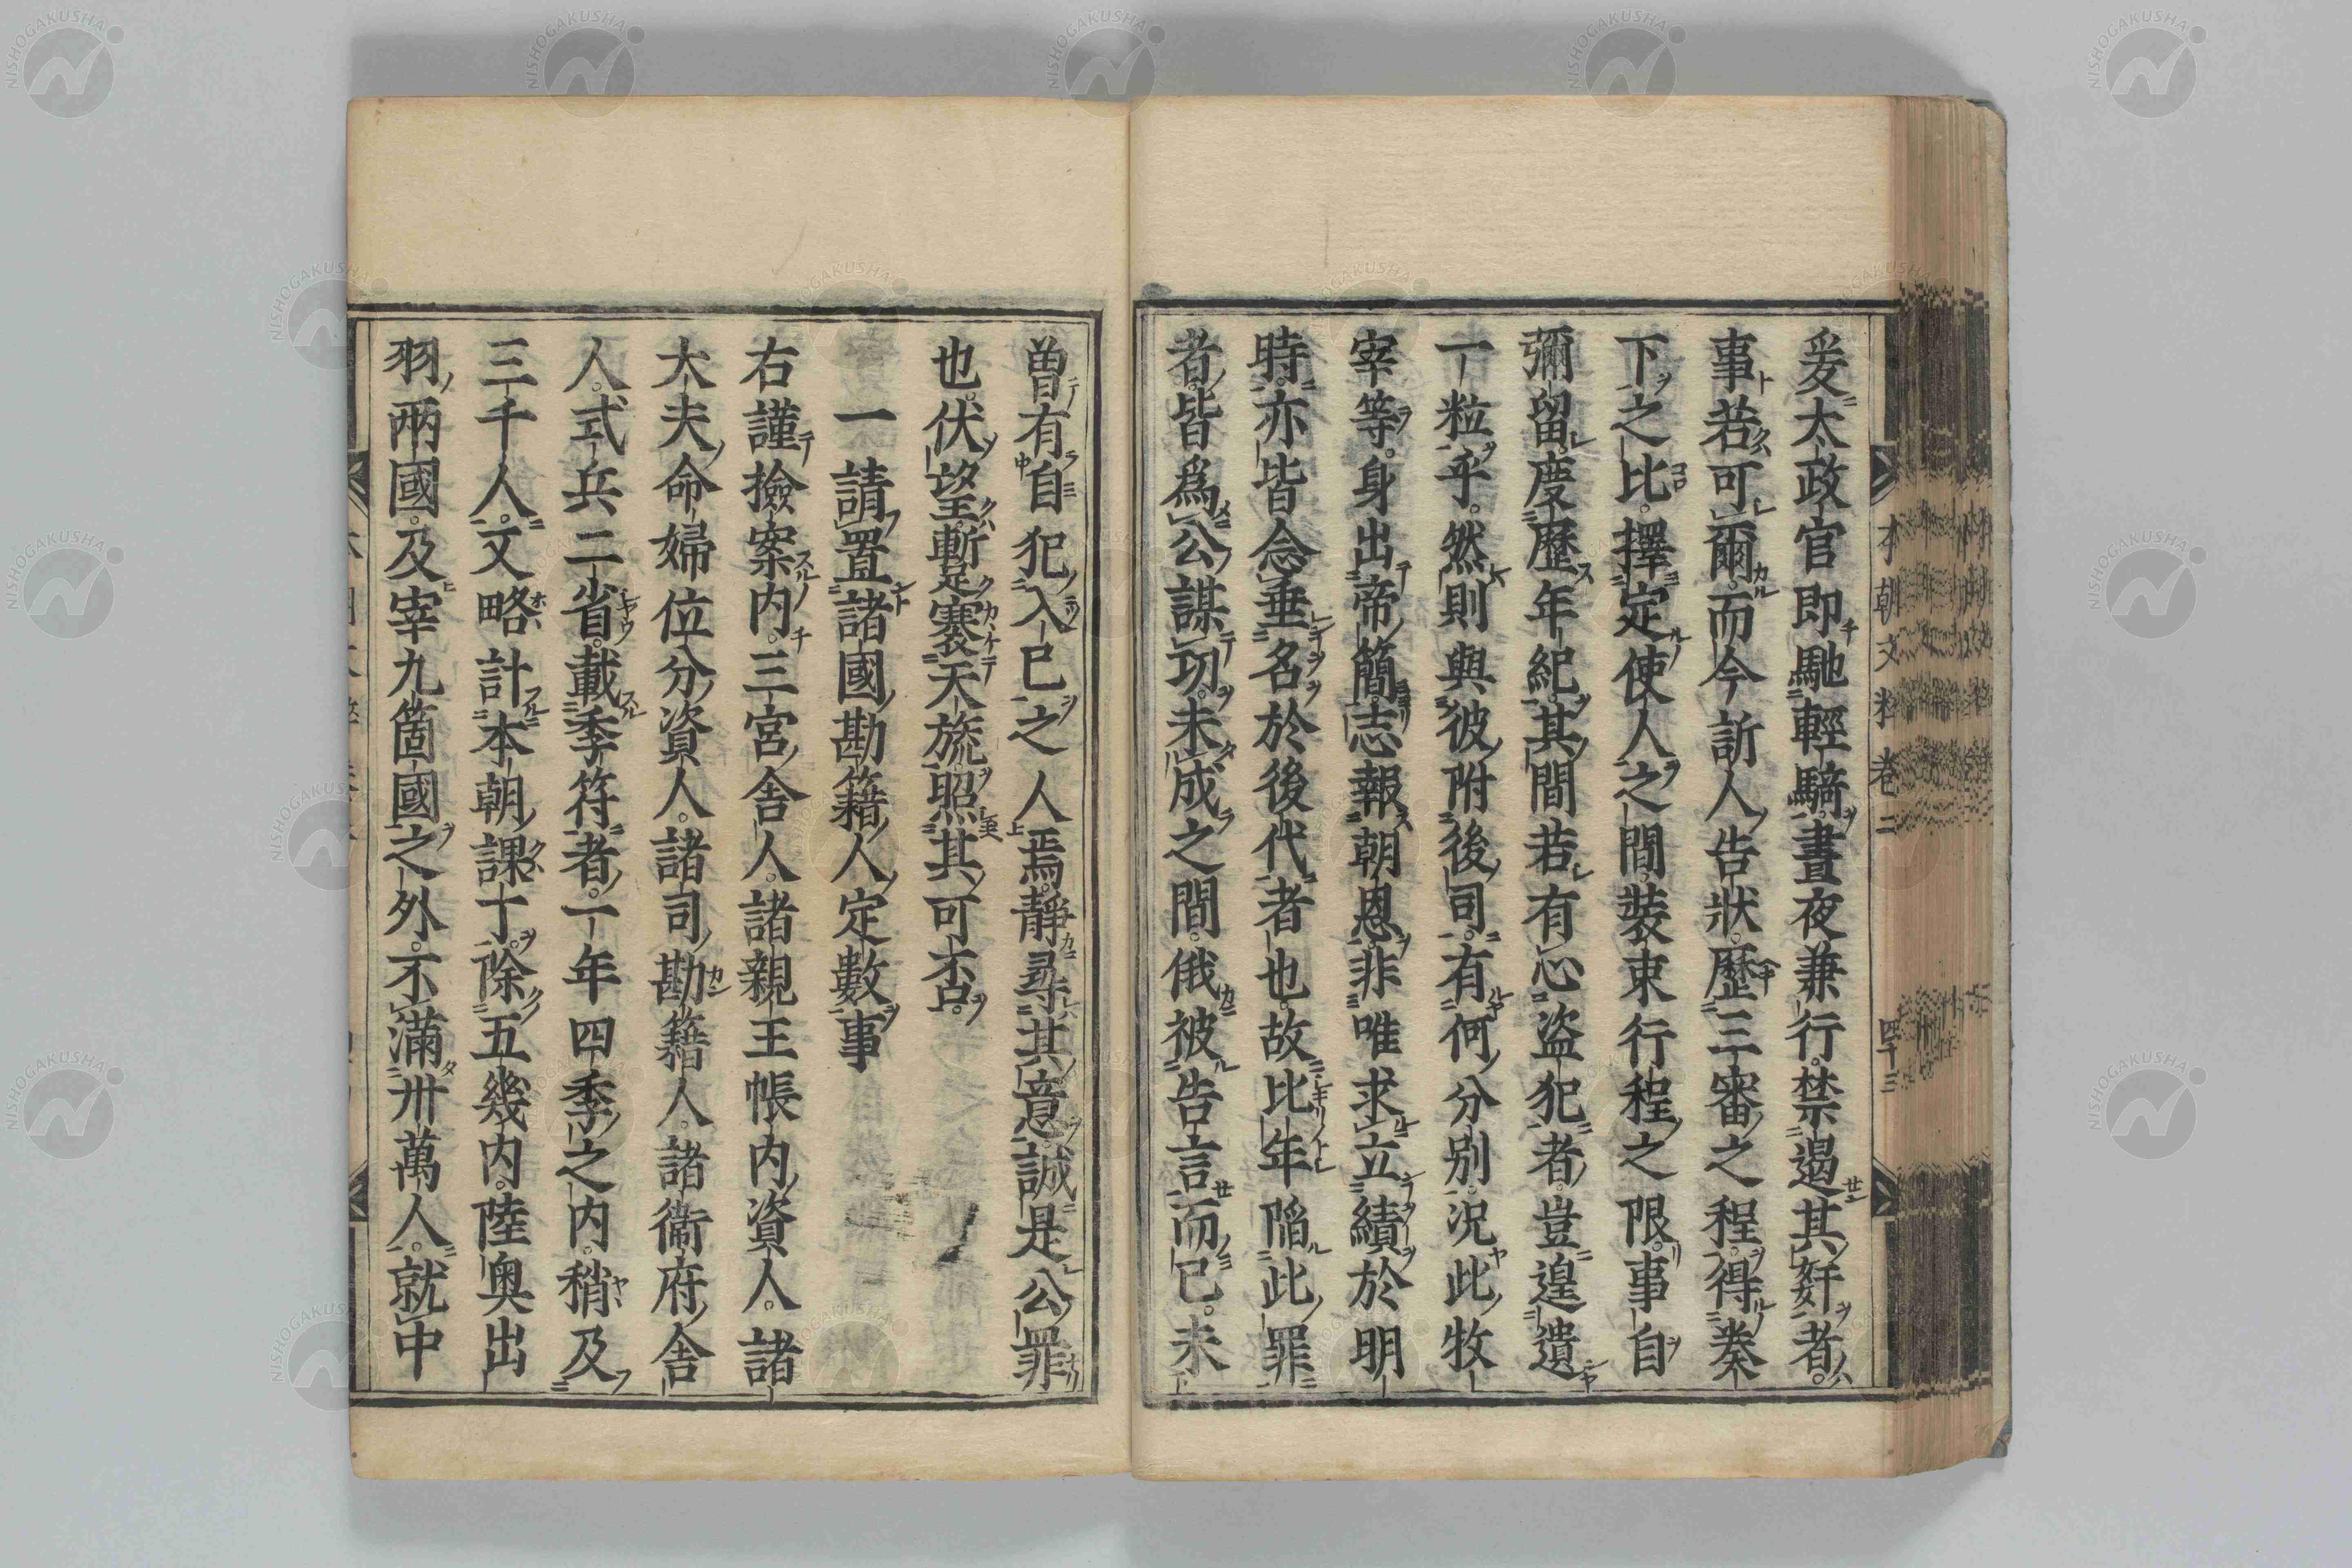 爰太政官即馳輕騎。晝夜兼行。禁遏其姧者。
事若可爾。而今訢人告狀。歷三審之程。得奏
下之比。擇定使人之間。裝束行程之限。事自
彌留。度歷年紀。其間若有心盜犯者。豈遑遺
一粒乎。然則與彼附後司。有何分別。況此牧
宰等。身出帝簡。志報朝恩。非唯求立績於明
時。亦皆念垂名於後代者也。故比年陷此罪
者。皆爲公謀切。未成之間。俄被告言而已。未
本朝文粹 卷二 四十三
曾有自犯入已之人焉。靜尋其意。誠是公罪
也。伏望。暫褰天旒。照其可否。
一請置諸國勘籍人定數事
右謹撿案内。三宮舍人。諸親王帳内資人。諸
大夫命婦位分資人。諸司勘籍人。諸衞府舍
人。式兵二省。載季符者。一年四季之内。稍及
三千人。文略計本朝課丁。除五幾内。陸奧出
羽兩國。及宰九箇國之外。不滿卅萬人。就中
NISHOGAKUSHA